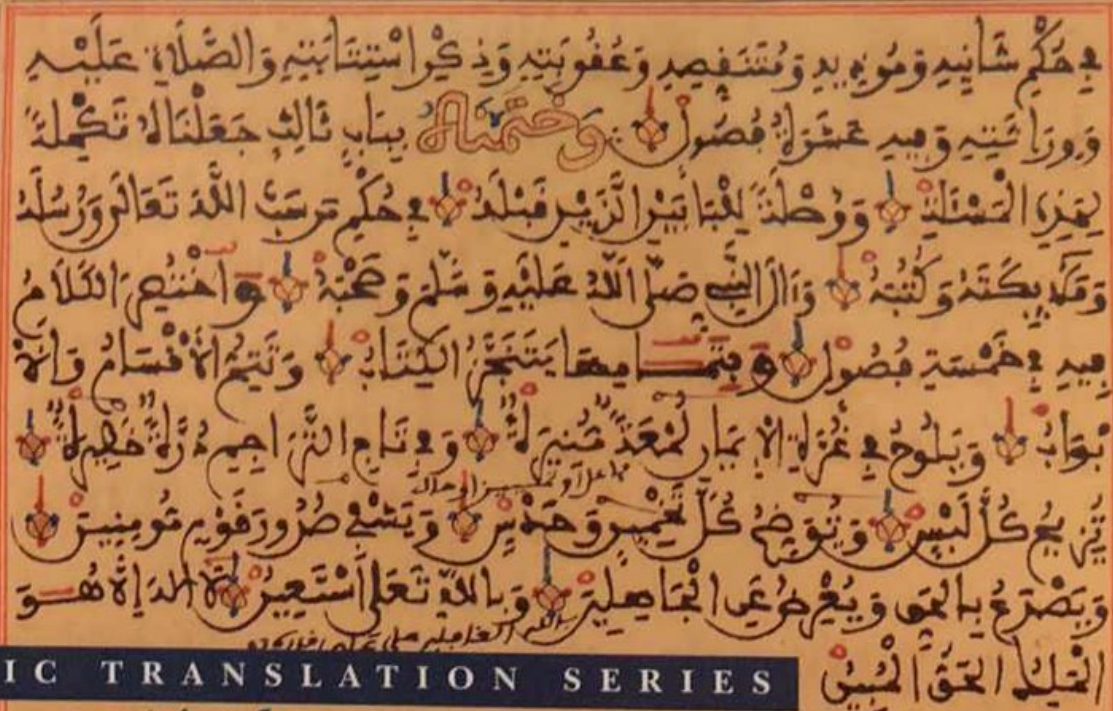 في حُكْمِ شَانِيهِ وَمُوذِيهِ وَمُتَنَقِّصِهِ وَعُقُوبَتِهِ وَذِكْرِ اسْتِتَابَتِهِ وَالصَّلَاةِ عَلَيْهِ
وَوِرَاثَتِهِ وَفِيهِ عَشَرَةُ فُصُولٍ وَخَتَمْنَاهُ بِبَابٍ ثَالِثٍ جَعَلْنَاهُ تَكْمِلَةً
لِهَذِهِ الْمَسْئَلَةِ وَوُصْلَةً لِلْبَابَيْنِ الَّذَيْنِ قَبْلَهُ في حُكْمِ مَن سَبَّ اللَّهَ تَعَالَى وَرُسُلَهُ
وَمَلَائِكَتَهُ وَكُتُبَهُ وَآلَ النَّبِيِّ صَلَّى اللَّهُ عَلَيْهِ وَسَلَّمَ وَصَحْبَهُ وَاخْتُصِرَ الْكَلَامُ
فِيهِ في خَمْسَةِ فُصُولٍ وَبِتَمَامِهَا يَنْتَجِزُ الْكِتَابُ وَتَتِمُّ الْأَقْسَامُ وَالْأَ
بْوَابُ وَيَلُوحُ في غُرَّةِ الْإِيمَانِ لُمْعَةٌ مُنِيرَةٌ وَفي تَاجِ التَّرَاجِمِ دُرَّةٌ خَطِيرَةٌ
تُزِيحُ كُلَّ لَبْسٍ وَتُوَضِّحُ كُلَّ تَخْمِينٍ وَحَدْسٍ وَيَشْفِي صُدُورَ قَوْمٍ مُومِنِينَ
وَيَصْدَعُ بِالْحَقِّ وَيُعْرِضُ عَنِ الْجَاهِلِينَ وَبِاللَّهِ تَعَلَى أَسْتَعِينُ لَا إِلَهَ إِلَّا هُوَ
الْمَلِكُ الْحَقُّ الْمُبِينُ
IC TRANSLATION SERIES